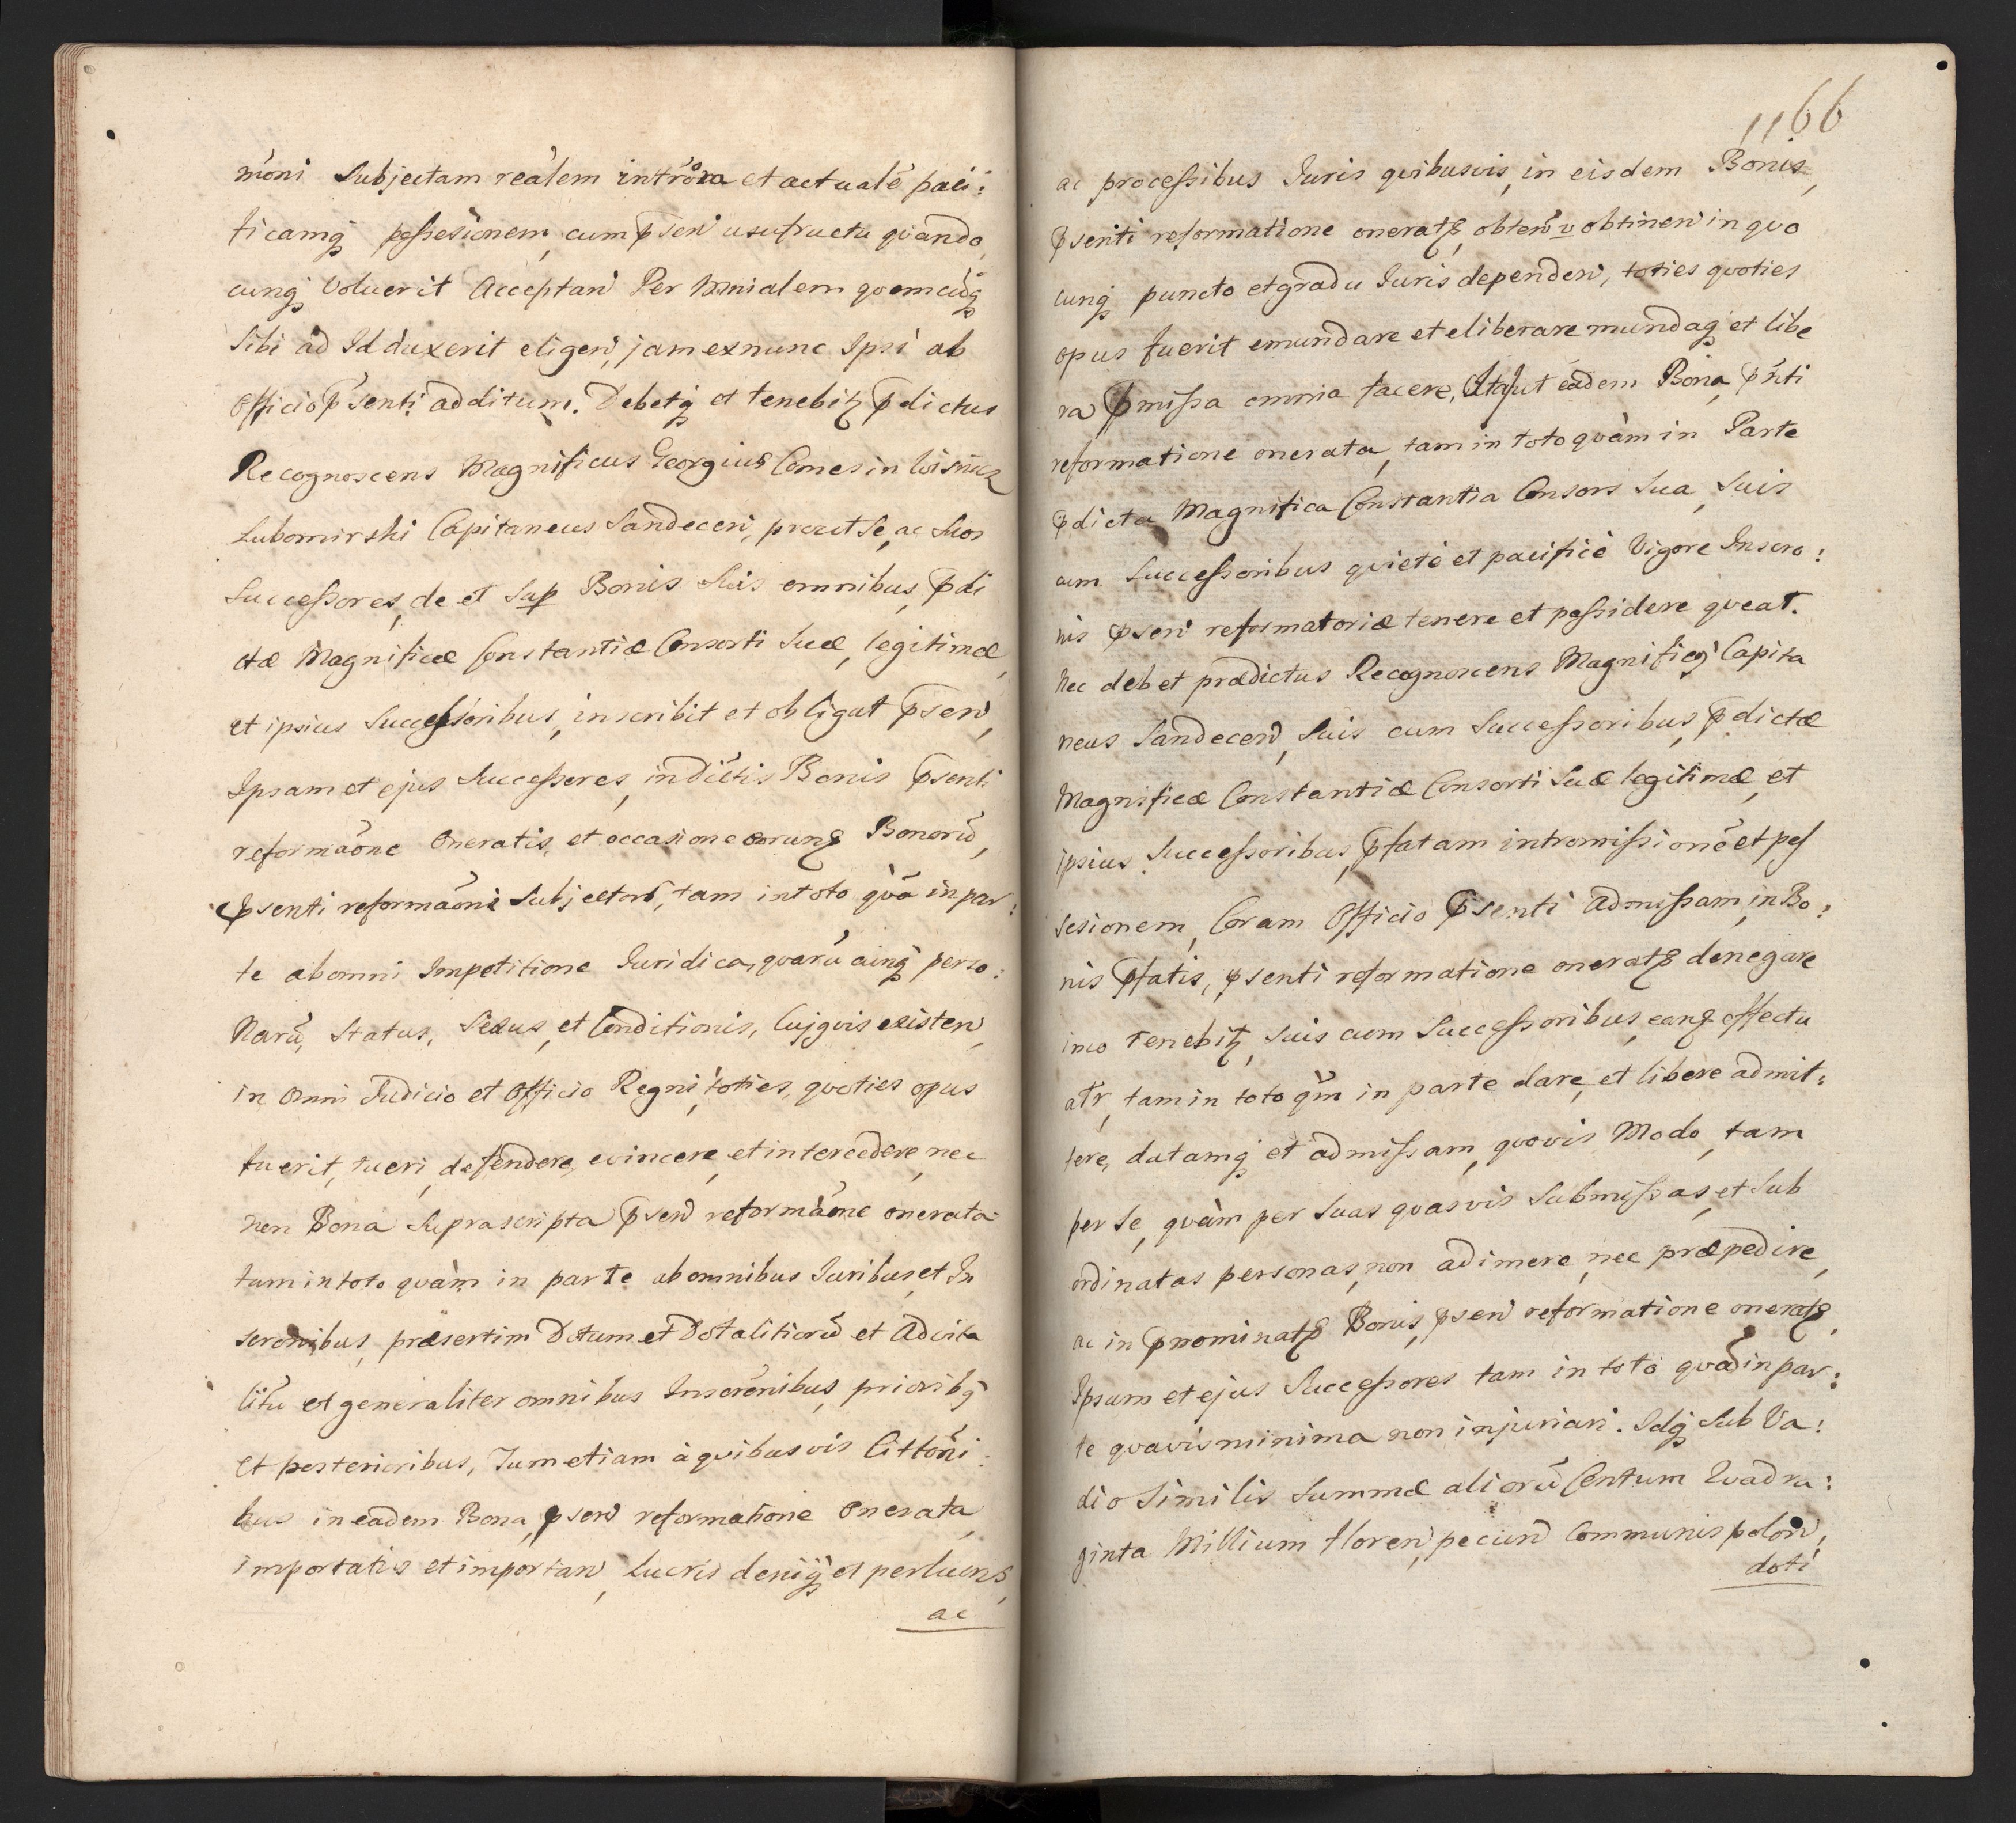 mõni Subjectam reálem intrõm et actualẽ paci:
ficamq̃ possesionem, cum p̃sen̄ usufructu qvando,
cunq̃ voluerit Acceptan̄ Per Mnialem qvemcũq̃
Sibi ad Id duxerit eligen̄, jam ex nunc Ipsi ab
Officio p̃senti additum. Debetq̃ et tenebit̃ p̃dictus
Recognoscens Magnificus Georgius Comes in Wisnicz
Lubomirski Capitaneus Sandecen̄, prout Se, ac Suos
Successores, de et Sup̲ Bonis Suis omnibus, p̃di
ctæ Magnificæ Constantiæ Consorti Suæ, legitimæ,
et ipsius Successoribus, inscribit et obligat p̃sen̄,
Ipsam et ejus Successores, in dictis Bonis p̃senti
reformaõne Oneratis, et occasione eorunꝫ Bonorũ,
p̃senti reformaõni Subjector̃, tam in toto qvã in par:
te ab omni Impetitione Juridica, qvarũ cunq̃ perso:
narũ, Status, Sexus, et Conditionis, Cujqvis existen̄,
in Omni Judicio et Officio Regni, toties, qvoties opus
fuerit, tueri, defendere, evincere, et intercedere, nec
non Bona Suprascripta p̃sen̄ reformaõne onerata
tam in toto qvàm in parte ab omnibus Juribus, et In
scronibus, præsertim Dotum et Dotalitiorũ et Advita
litũ et generaliter omnibus Inscrõnibus, prioribq̃
et posterioribus, Tum etiam à qvibusvis Cittõni:
bus in eadem Bona, p̃sen̄ reformatione Onerata,
importatis et importan̄, Lucris deniq̃ et perlucris,
ac
1166
ac processibus Juris qvibusvis, in eisdem Bonis,
p̃senti reformatione oneratꝫ, obten̄ v̲ obtinen̄ in qvo
cunq̃ puncto et gradu Juris dependen̄, toties qvoties
opus fuerit emundare et eliberare mundaq̃ et libe
ra p̃missa omnia facere, Ita, ut eadem Bona, p̃ñti
reformatione onerata, tam in toto qvàm in Parte
p̃dicta Magnifica Constantia Consors Sua, Suis
cum Successoribus qvietè et pacificè Vigore Inscro:
nis p̃sen̄ reformatoriæ tenere et possidere qveat.
Nec debet prædictus Recognoscens Magnificq̃ Capita
neus Sandecen̄, Suis cum Successoribus, p̃dictæ
Magnificæ Constantiæ Consorti Suæ legitimæ, et
ipsius Successoribus, p̃fatam intromissionẽ et pos
sesionem, Coram Officio p̃senti Admissam, in Bo:
nis p̃fatis, p̃senti reformatione oneratꝫ denegare
imo tenebit̃, Suis cum Successoribus, eanꝫ effectu
atr̃, tam in toto qm̃ in parte dare, et liberè admit:
tere, datamq̃ et admissam, qvovis Modo, tam
per Se, qvàm per Suas qvasvis Submissas, et Sub
ordinatas personas, non adimere, nec præpedire,
ac in p̃nominatꝫ Bonis, p̃sen̄ reformatione oneratꝫ,
Ipsum et ejus Successores tam in toto qvã in par:
te qvavis minima non injuriari. Idq̃ Sub Va:
dio Similis Summæ aliorũ Centum Qvadra:
ginta Millium floren̄, pecun̄ Communis polon̄,
doti